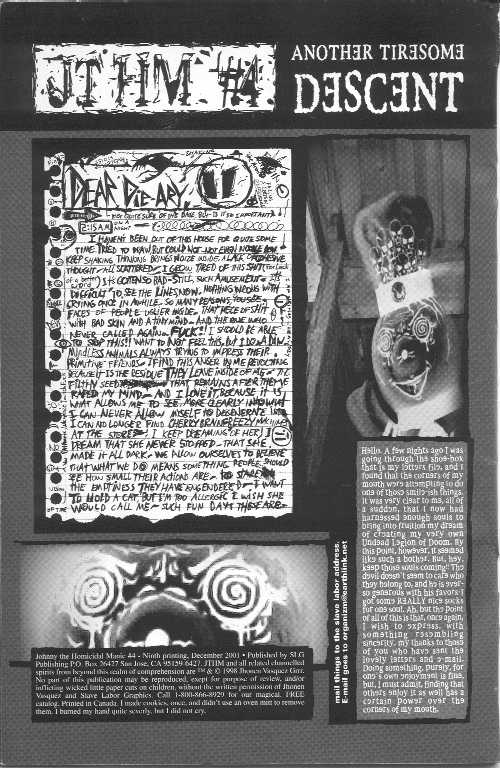 JTHM #4
ANOTHER TIRESOME
DESCENT
DEAR DIE-ARY,
2:15 A.M.
NOT QUITE SURE OF THE DATE, BUT IS IT SO IMPORTANT?
I HAVEN'T BEEN OUT OF THIS HOUSE FOR QUITE SOME
TIME. TRIED TO DRAW, BUT COULD NOT
KEEP SHAKING
THOUGHT ALL SCATTERED TIRED OF THIS SHIT
IT'S GOTTEN SO BAD
DIFFICULT TO SEE THE LINES NOW. NOTHING WRONG WITH
DOTING ONCE IN AWHILE. SO MANY REASONS. YOU SEE
FACES OF PEOPLE UGLIER INSIDE. THAT PIECE OF SHIT
WITH BAD SKIN AND A TINY MIND. AND THE ONE WHO
NEVER CALLED AGAIN. FUCK!! I SHOULD BE ABLE
TO STOP THIS!! I WANT TO NOT FEEL THIS, BUT I DO. DAMN
MINDLESS ANIMALS ALWAYS TRYING TO IMPRESS THEIR
PRIMITIVE FRIENDS. I FIND THIS ANGER IN ME REVOLTING
BECAUSE IT IS THE RESIDUE THEY LEAVE INSIDE OF ME. THE
FILTHY SEED THAT REMAINS AFTER THEY'VE
RAPED MY MIND. AND I LOVE IT, BECAUSE IT IS
WHAT ALLOWS ME TO SEE MORE CLEARLY INTO WHAT
I CAN NEVER ALLOW MYSELF TO DEGENERATE INTO
I CAN NO LONGER FIND CHERRY BRAINFREEZY MACHINES
AT THE STORES. I KEEP DREAMING OF HER. I
DREAM THAT SHE NEVER STOPPED. THAT SHE
MADE IT ALL DARK. WE ALLOW OURSELVES TO BELIEVE
THAT WHAT WE DO MEANS SOMETHING. PEOPLE SHOULD
SEE HOW SMALL THEIR ACTIONS ARE. TO STALE
THE EMPTINESS THEY HAVE ENGENDERED. I WANT
TO HOLD A CAT, BUT I'M TOO ALLERGIC. I WISH SHE
WOULD CALL ME. SUCH FUN DAYS THESE ARE.
Hello. A few nights ago I was
going through the shoe-box
that is my letters file, and I
found that the corners of my
mouth were attempting to do
one of those smile-ish things.
It was very clear to me, all of
a sudden, that I now had
harnessed enough souls to
bring into fruition my dream
of creating my very own
Undead Legion of Doom. By
this point, however, it seemed
like such a bother. But, hey,
keep those souls coming!! The
devil doesn't seem to care who
they belong to, and he is ever-
so generous with his favors-I
got some REALLY nice socks
for one soul. Ah, but the point
of all of this is that, once again,
I wish to express, with
something resembling
sincerity, my thanks to those
of you who have sent the
lovely letters and e-mail.
Doing something, purely, for
one's own enjoyment is fine,
but, I must admit, finding that
others enjoy it as well has a
certain power over the
corners of my mouth.
mail things to the slave labor address.
E-mail goes to organizm@earthlink.net
Johnny the Homicidal Maniac #4 • Ninth printing, December 2001 • Published by SLG
Publishing P.O. Box 26427 San Jose, CA 95159-6427. JTHM and all related channelled
spirits from beyond this realm of comprehension are ™ & © 1998 Jhonen Vasquez Grrr.
No part of this publication may be reproduced, exept for purpose of review, and/or
inflicting wicked little paper cuts on children, without the written permission of Jhonen
Vasquez and Slave Labor Graphics. Call 1-800-866-8929 for our magical, FREE
catalog. Printed in Canada. I made cookies, once, and didn't use an oven mitt to remove
them. I burned my hand quite severly, but I did not cry.